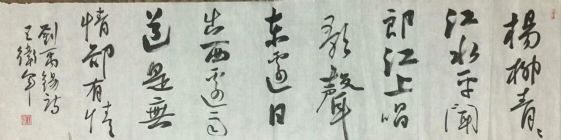 楊柳青〻
江水平聞
郎江上唱
歌聲
東邊日
出西邊雨
道是無
情卻有情
劉禹錫詩
王衛軍